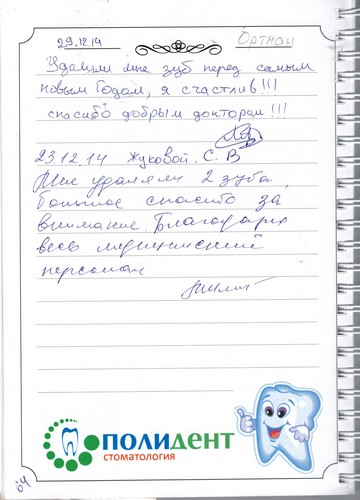 29.12.14 Ортман
Удалили мне зуб перед самым
новым годом, я счастлив!!!
спасибо добрым докторам!!!
23.12.14 Жуковой. С. В
Мне удаляли 2 зуба,
большое спасибо за
внимание. Благодарю
весь медицинский
персонал
ПОЛИДЕНТ
СТОМАТОЛОГИЯ
64